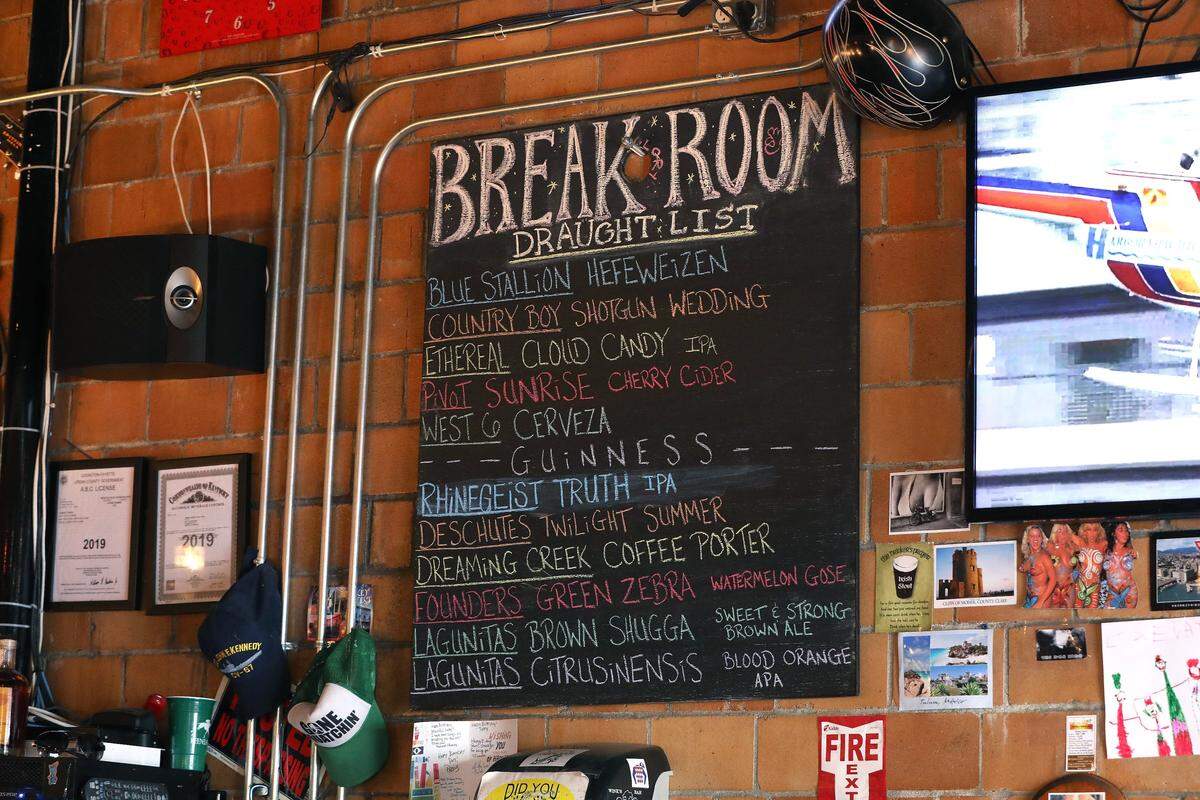 7 6 5
BREAK ROOM
DRAUGHT LIST
BLUE STALLION HEFEWEIZEN
COUNTRY BOY SHOTGUN WEDDING
ETHEREAL CLOUD CANDY IPA
PIVOT SUNRISE CHERRY CIDER
WEST 6 CERVEZA
--- GUINNESS ---
RHINEGEIST TRUTH IPA
DESCHUTES TWILIGHT SUMMER
DREAMING CREEK COFFEE PORTER
FOUNDERS GREEN ZEBRA WATERMELON GOSE
LAGUNITAS BROWN SHUGGA SWEET & STRONG
BROWN ALE
LAGUNITAS CITRUSINENSIS BLOOD ORANGE
APA
A.B.C. LICENSE
2019
COMMONWEALTH OF KENTUCKY
2019
F. KENNEDY
CV-67
GONE
Irish
Stout
CLIFFS OF MOHER, COUNTY CLARE
DID YOU
FIRE
EXT